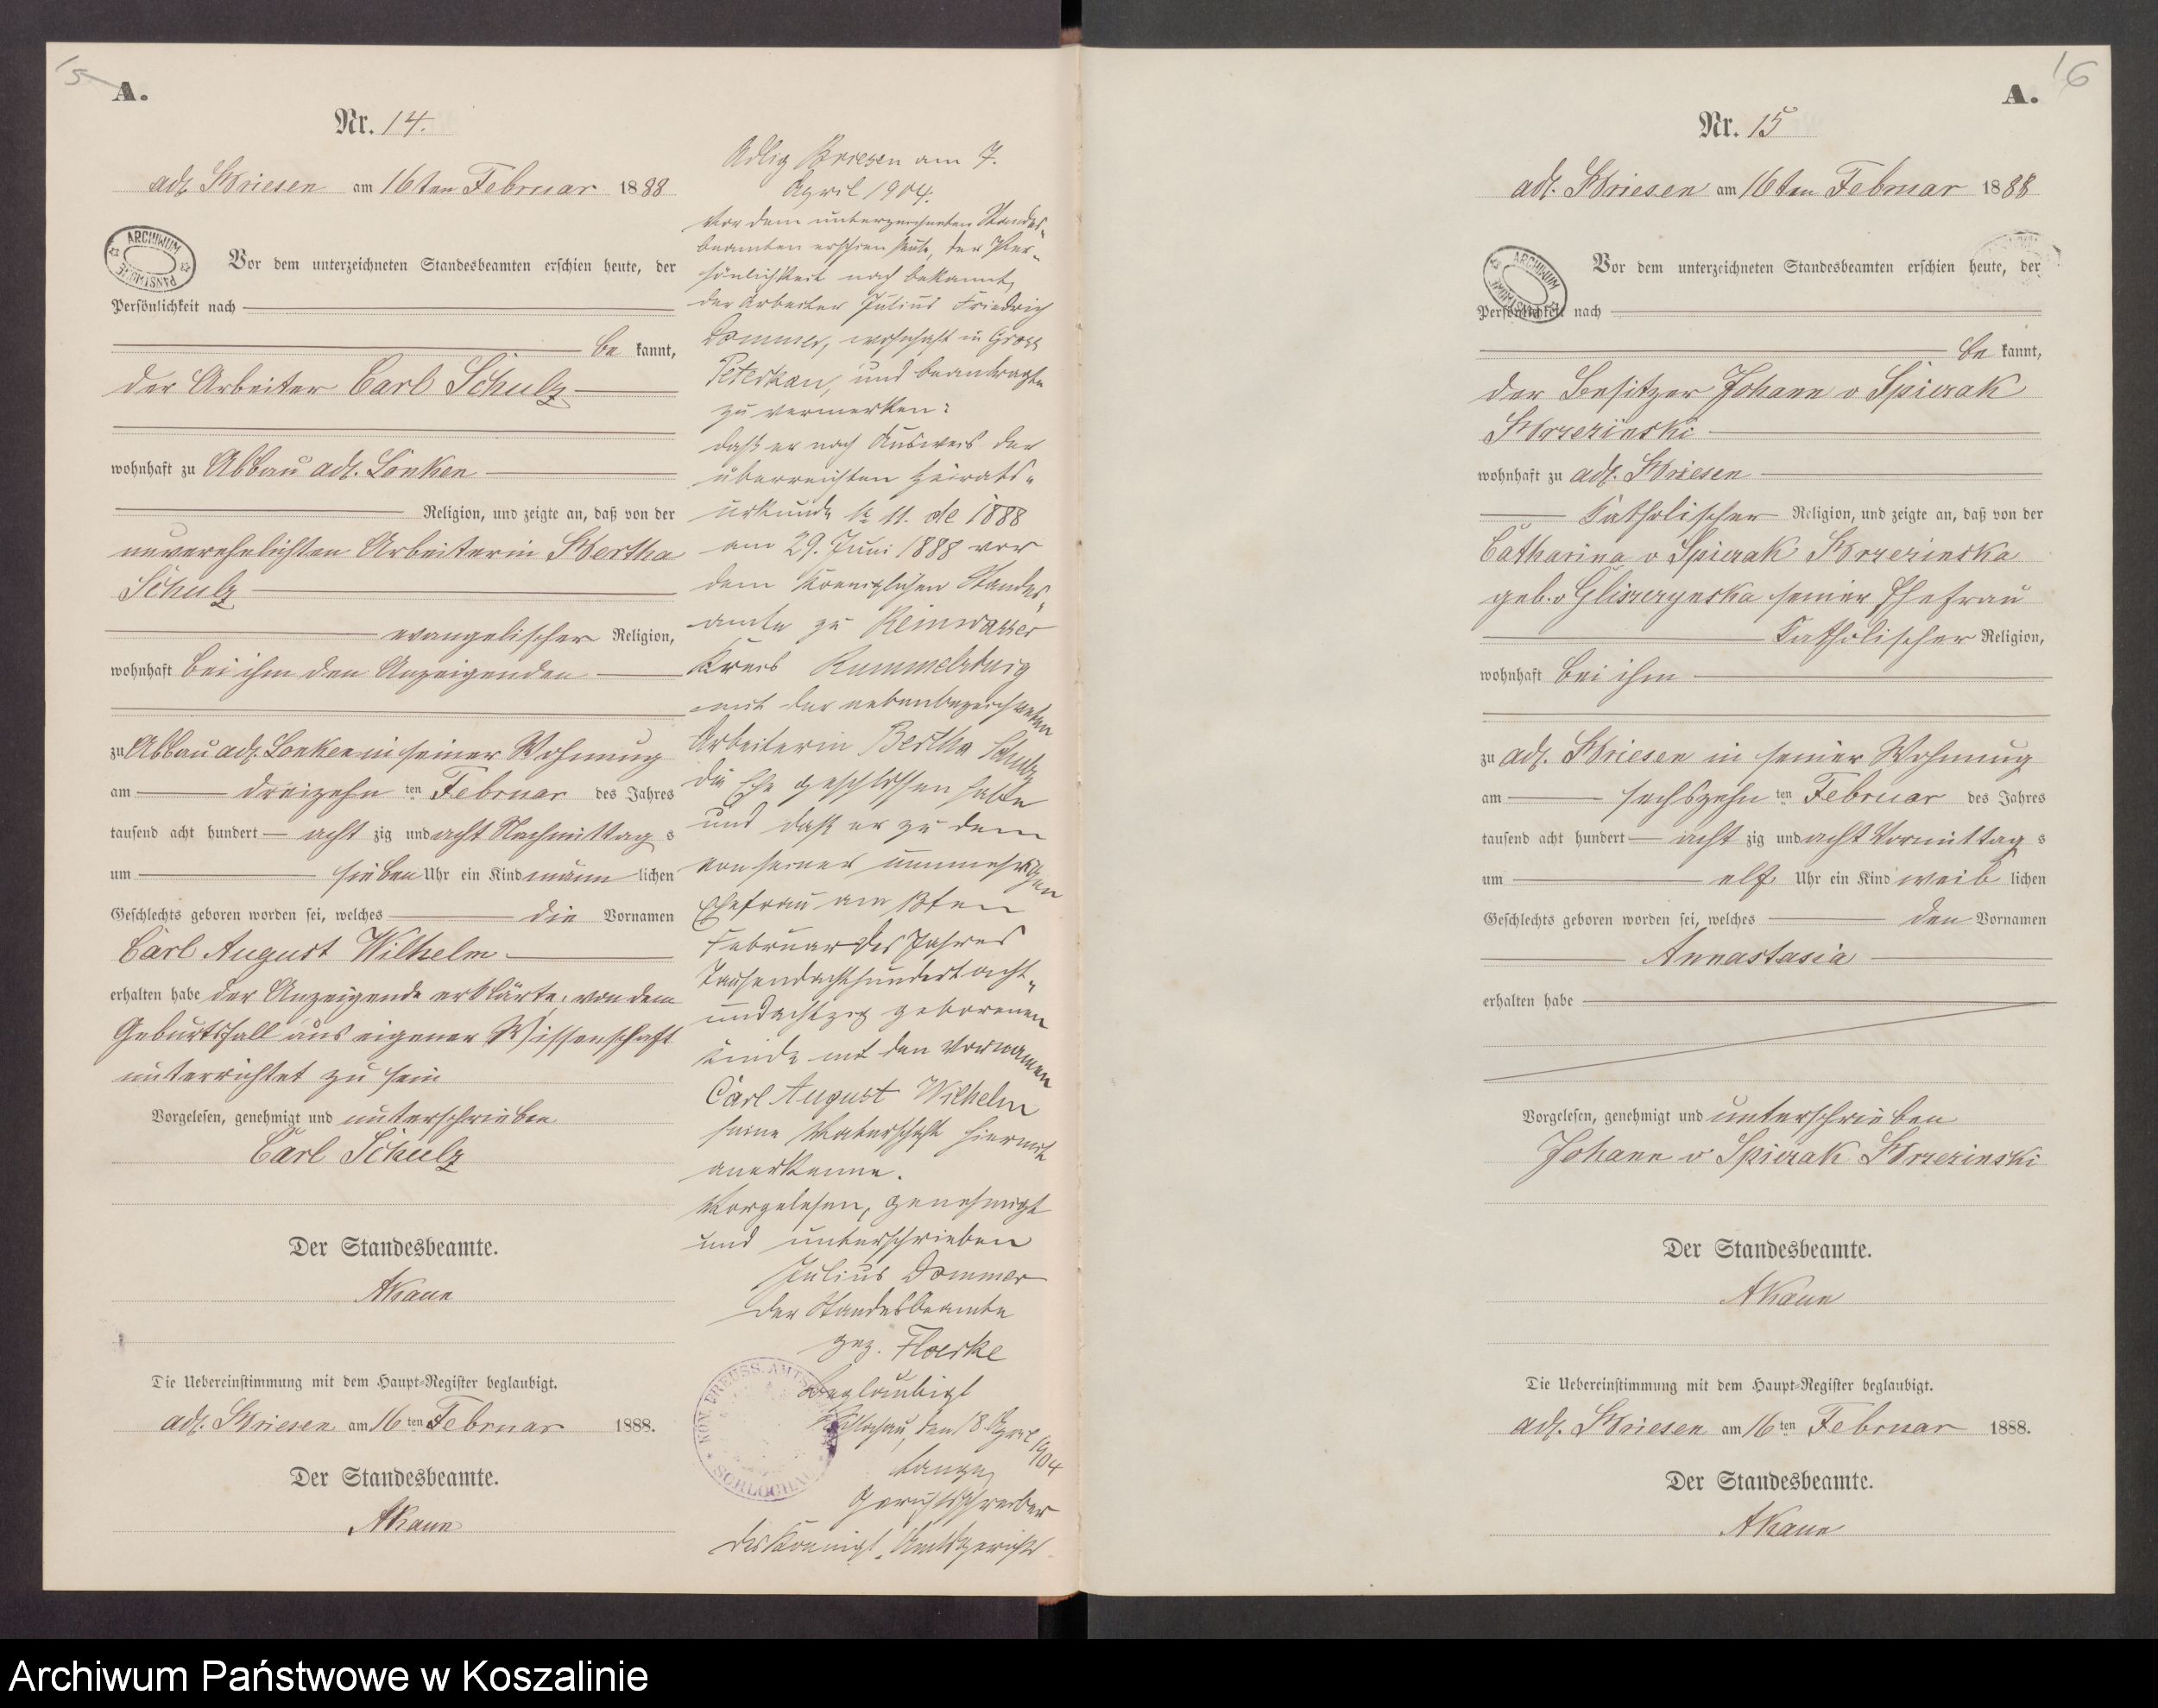 15
A.
Nr. 14.
adl. Briesen am 16ten Februar 1888
ARCHIWUM PAŃSTWOWE
Vor dem unterzeichneten Standesbeamten erschien heute, der
Persönlichkeit nach
be kannt,
der Arbeiter Carl Schulz
wohnhaft zu Abbau adl. Lonken
Religion, und zeigte an, daß von der
unverehelichten Arbeiterin Bertha
Schulz
evangelischer Religion,
wohnhaft bei ihm den Anzeigenden
zu Abbau adl. Lonken in seiner Wohnung
am dreizehn ten Februar des Jahres
tausend acht hundert acht zig und acht Nachmittag s
um sieben Uhr ein Kind männ lichen
Geschlechts geboren worden sei, welches die Vornamen
Carl August Wilhelm
erhalten habe der Anzeigende erklärte, von dem
Geburtsfall aus eigener Wissenschaft
unterrichtet zu sein
Vorgelesen, genehmigt und unterschrieben
Carl Schulz
Der Standesbeamte.
Die Uebereinstimmung mit dem Haupt-Register beglaubigt.
adl. Briesen am 16 ten Februar 1888.
Der Standesbeamte.
Adlig Briesen am 7.
April 1904.
Vor dem unterzeichneten Standes-
beamten erschien heute, der Per-
sönlichkeit nach bekannt,
der Arbeiter Julius Friedrich
Dommer, wohnhaft in Gross
Peterkau, und beantragte
zu vermerken:
daß er nach Ausweis der
überreichten Heirats-
urkunde № 11. de 1888
am 29. Juni 1888 vor
dem Koeniglichen Standes-
amte zu Reinwasser
Kreis Rummelsburg
mit der nebenbezeichneten
Arbeiterin Bertha Schulz
die Ehe geschlossen habe
und daß er zu dem
von seiner nunmehrigen
Ehefrau am 13ten
Februar des Jahres
Tausendachthundertacht-
undachtzig geborenen
Kinde mit den Vornamen
Carl August Wilhelm
seine Vaterschaft hiermit
anerkenne.
Vorgelesen, genehmigt
und unterschrieben
Julius Dommer
Der Standesbeamte
gez. Floerke
Beglaubigt
Schlochau, den 18. April 1904
Lange,
Gerichtsschreiber
des Königl. Amtsgerichts.
KÖN. PREUSS. AMTS
SCHLOCHAU
16
A.
Nr. 15
adl. Briesen am 16ten Februar 1888
ARCHIWUM PAŃSTWOWE
Vor dem unterzeichneten Standesbeamten erschien heute, der
Persönlichkeit nach
be kannt,
der Besitzer Johann v Spiczak
Brzezinski
wohnhaft zu adl. Briesen
Katholischer Religion, und zeigte an, daß von der
Catharina v Spiczak Brzezinska
geb. v Gliszczynska seiner Ehefrau
Katholischer Religion,
wohnhaft bei ihm
zu adl. Briesen in seiner Wohnung
am sechszehn ten Februar des Jahres
tausend acht hundert acht zig und acht Vormittag s
um elf Uhr ein Kind weib lichen
Geschlechts geboren worden sei, welches den Vornamen
Annastasia
erhalten habe
Vorgelesen, genehmigt und unterschrieben
Johann v Spiczak Brzezinski
Der Standesbeamte.
Die Uebereinstimmung mit dem Haupt-Register beglaubigt.
adl. Briesen am 16 ten Februar 1888.
Der Standesbeamte.
Archiwum Państwowe w Koszalinie